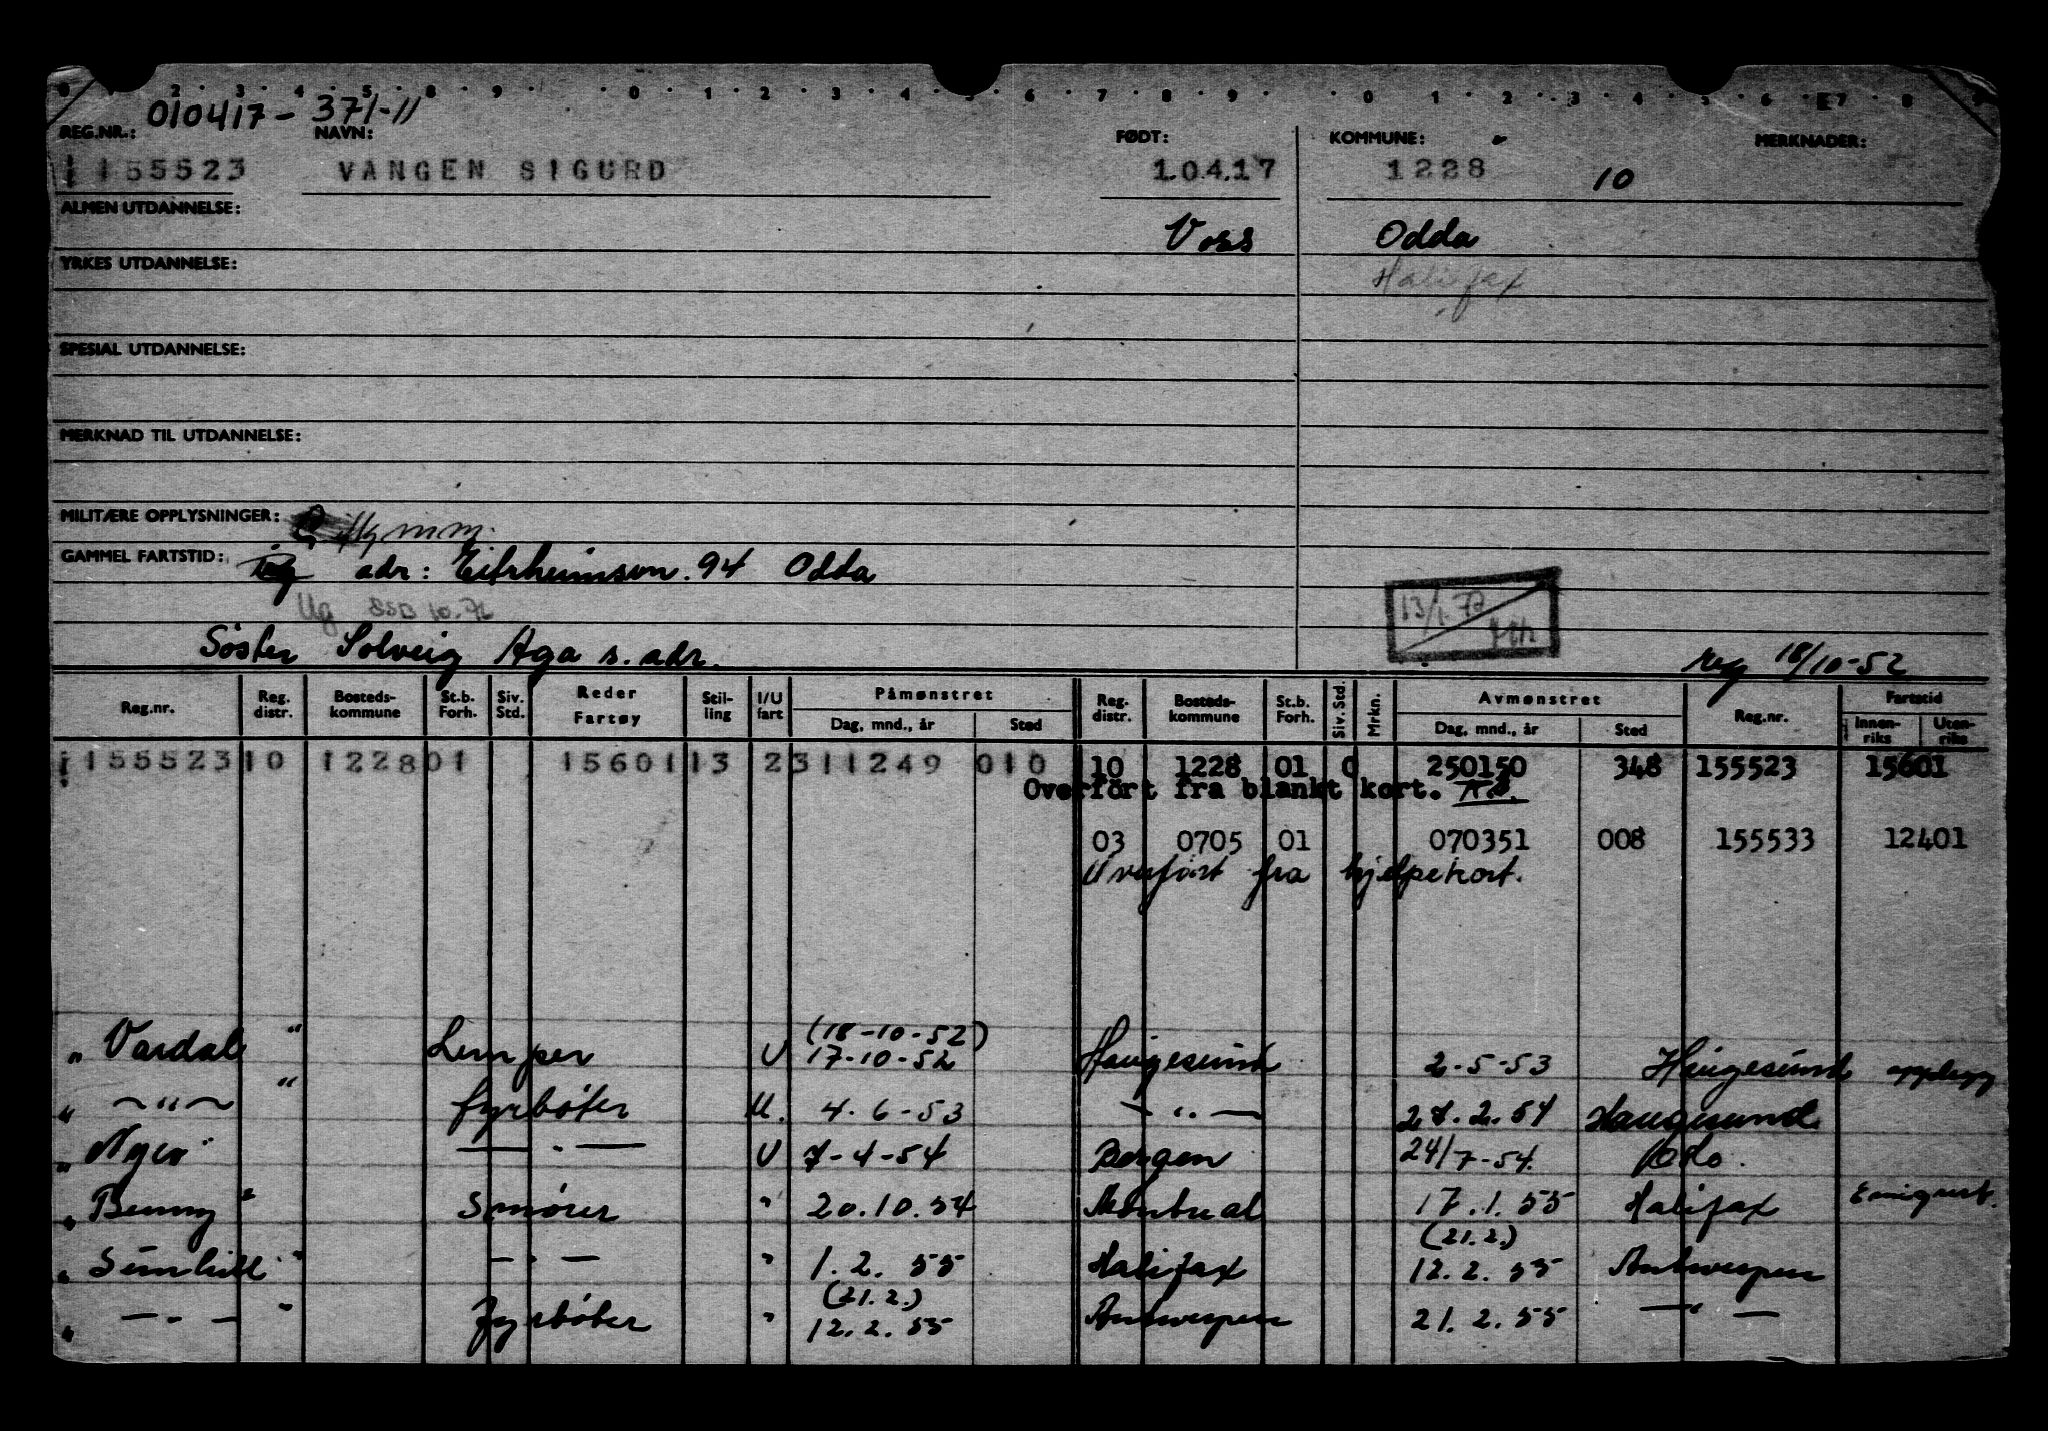 010417-371-11
REG.NR.: NAVN: FØDT: KOMMUNE: MERKNADER:
155523 VANGEN SIGURD 1.04.17 1228 10
ALMEN UTDANNELSE: Voss Odda
YRKES UTDANNELSE: Halifax
SPESIAL UTDANNELSE:
MERKNAD TIL UTDANNELSE:
MILITÆRE OPPLYSNINGER:
GAMMEL FARTSTID: adr: Eitrheimsvn. 94 Odda
Ug SSB 10.72 13/1.77
Söster Solveig Aga s. adr. reg 18/10-52
Reg.nr. Reg. distr. Bosteds-kommune St.b. Forh. Siv. Std. Reder Fartøy Stil-ling I/U fart Påmønstret Dag, mnd., år Sted Reg. distr. Bosteds-kommune St.b. Forh. Siv. Std. Mrkn. Avmønstret Dag, mnd., år Sted Reg.nr. Fartstid Innen-riks Uten-riks
155523 10 1228 01 15601 13 2 311249 010 10 1228 01 0 250150 348 155523 15601
Overført fra blankt kort.
03 0705 01 070351 008 155533 12401
Overført fra hjelpekort.
(18-10-52)
" Vardal " Lemper U 17-10-52 Haugesund 2-5-53 Haugesund opplegg
" — " — " fyrbøter U. 4.6-53 — " — 27.2.54 Haugesund
" U 7-4-54 Bergen 24/7-54. Oslo.
" Benny " Smører " 20.10.54 Montreal 17.1.55 Halifax Emigrert.
(21.2.)
" Sunhill " — " — " 1.2.55 Halifax 12.2.55 Antwerpen
(21.2.)
" — " — " Fyrbøter " 12.2.55 Antwerpen 21.2.55 — " —